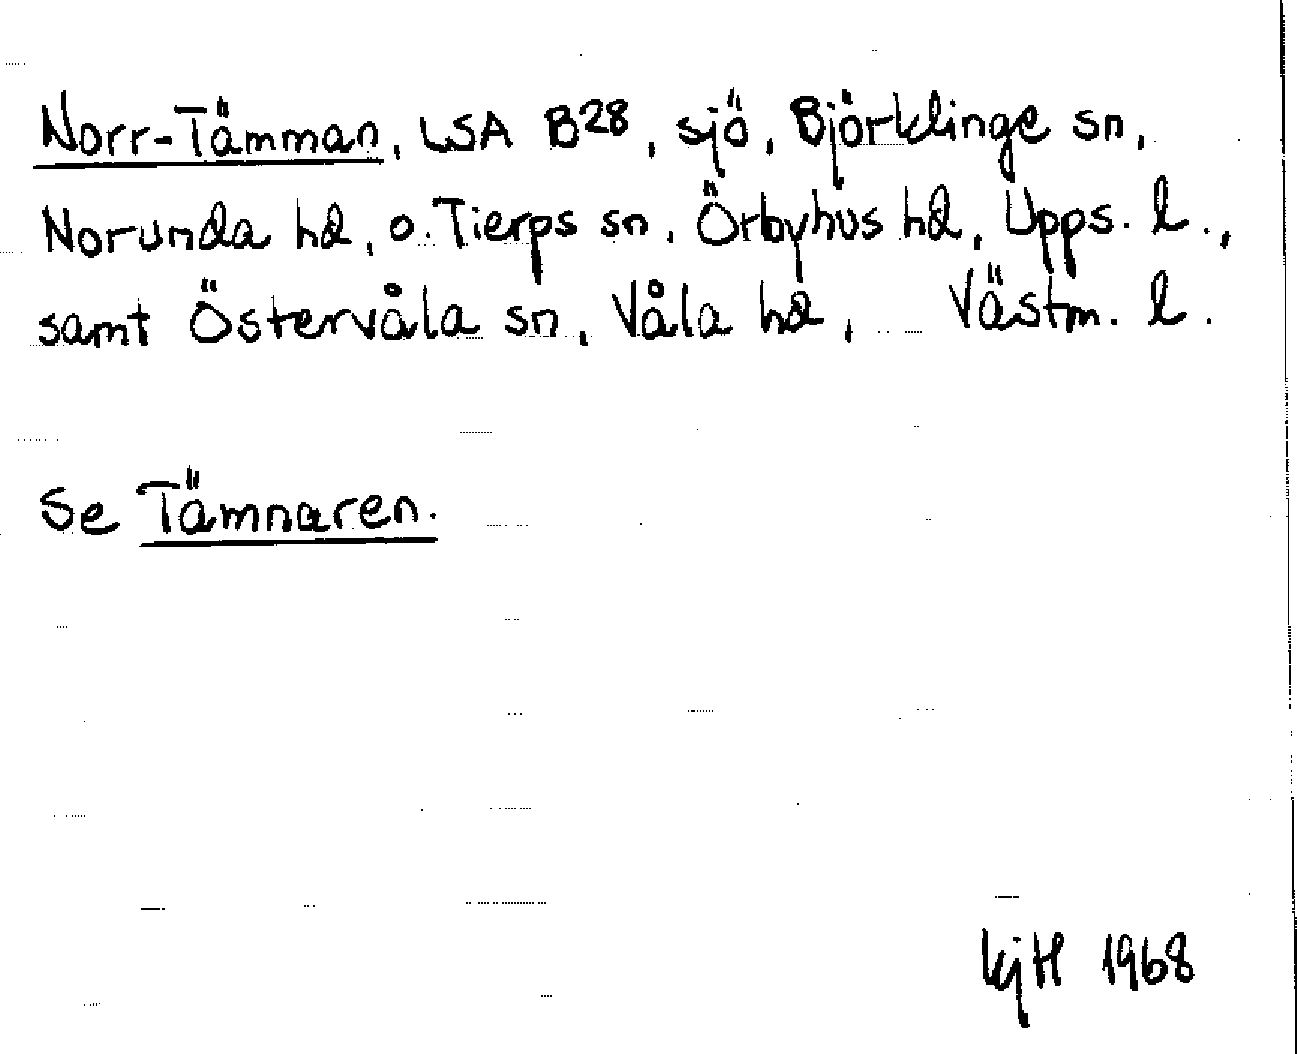 Norr-Tämman, LSA B28, sjö, Björklinge sn,
Norunda hd, o. Tierps sn, Örbyhus hd, Upps. l.,
samt Östervåla sn, Våla hd, Västm. l.
Se Tämnaren.
kjH 1968